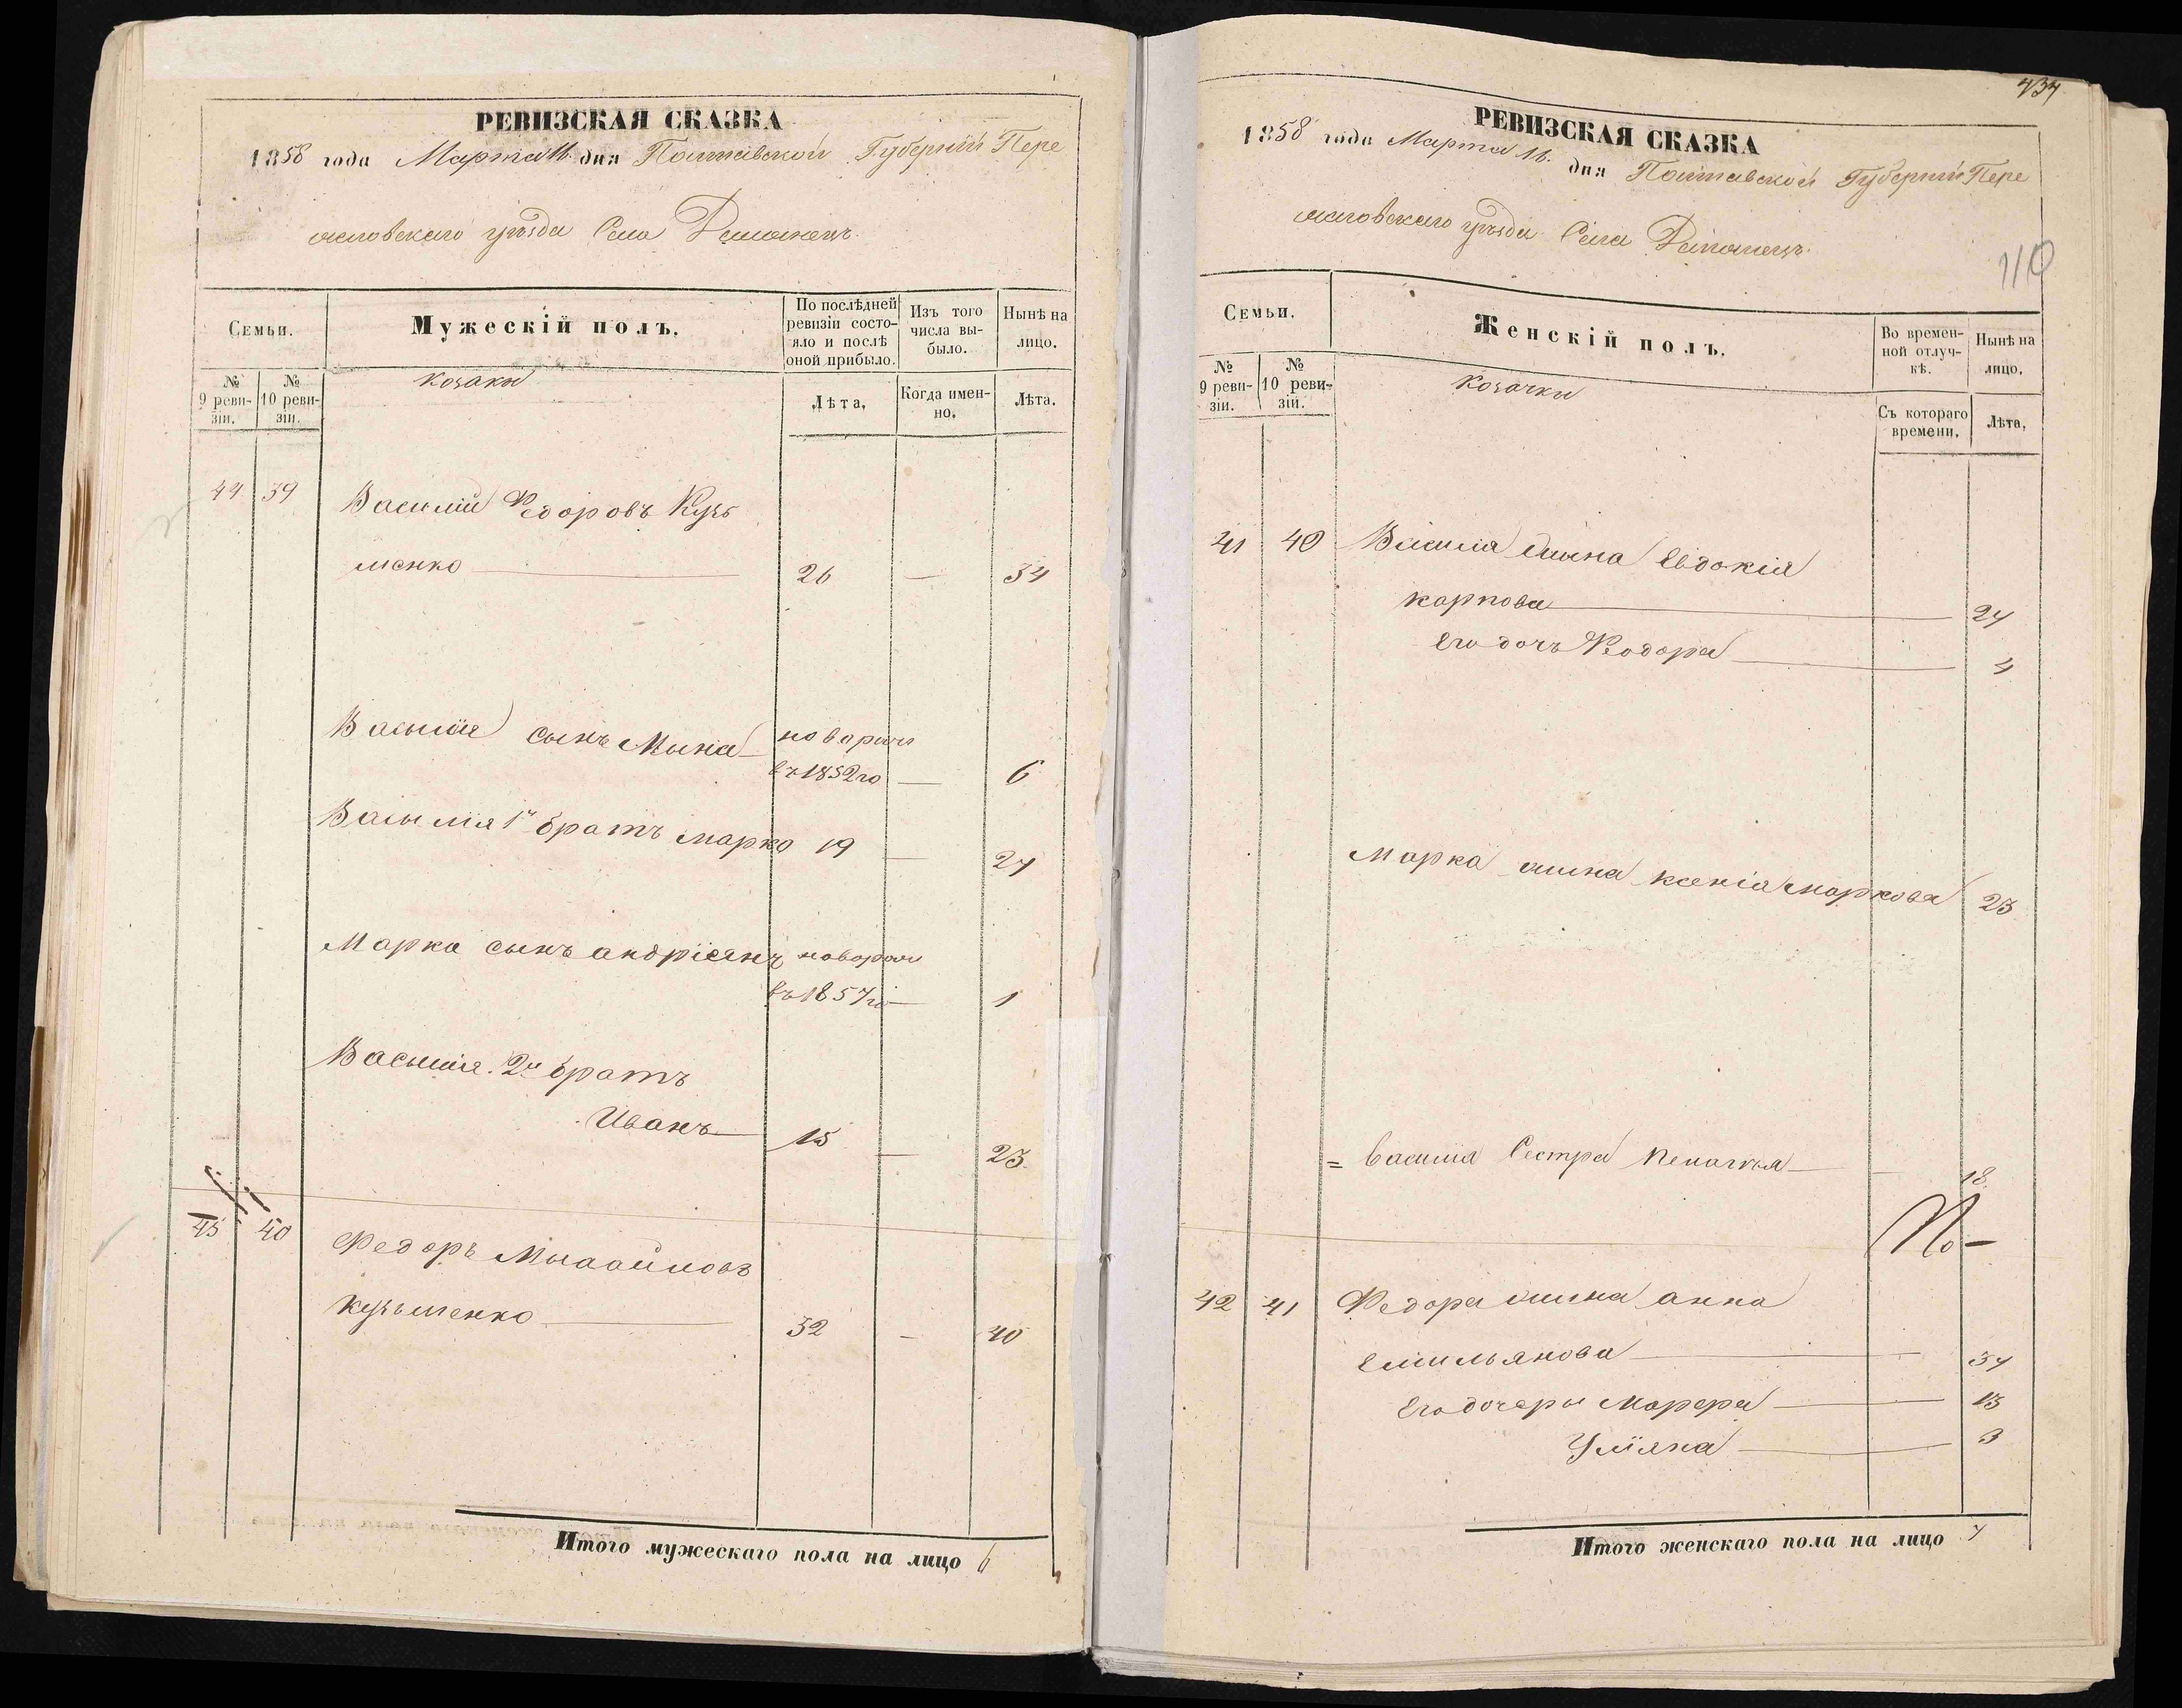 РЕВИЗСКАЯ СКАЗКА
1858 года Марта 16. дня Полтавской Губернии Пере
яславскаго уѣзда Села
Семьи.
Мужескій полъ.
По послѣдней ревизіи состояло и послѣ оной прибыло.
Изъ того числа выбыло.
Нынѣ на лицо.
№ 9 ревизіи.
№ 10 ревизіи.
козаки
Лѣта.
Когда именно.
Лѣта.
44 39 Василій Федоровъ Кузь
менко 26 — 34
Василія сынъ Мина новорож
въ 1852 го — 6
Василія 1й братъ марко 19 — 27
Марка сынъ андріянъ новорож
въ 1857 го — 1
Василія 2й братъ
Иванъ 15 — 23.
45 40 Федоръ
кузьменко 32 — 40
Итого мужескаго пола на лицо 6
434
РЕВИЗСКАЯ СКАЗКА
1858 года Марта 16. дня Полтавской Губернии Пере
яславскаго уѣзда Села
110
Семьи.
Женскій полъ.
Во временной отлучкѣ.
Нынѣ на лицо.
№ 9 ревизіи.
№ 10 ревизіи.
козачки
Съ котораго времени.
Лѣта.
41 40 Василія жена Евдокія
карпова — 24
Его дочь Феодора — 4
Марка жена ксенія маркова 23
= Василія Сестра — 18.
42 41 Федора жена анна
Емильянова — 34
Его дочери 13
Уліяна — 3
Итого женскаго пола на лицо 7